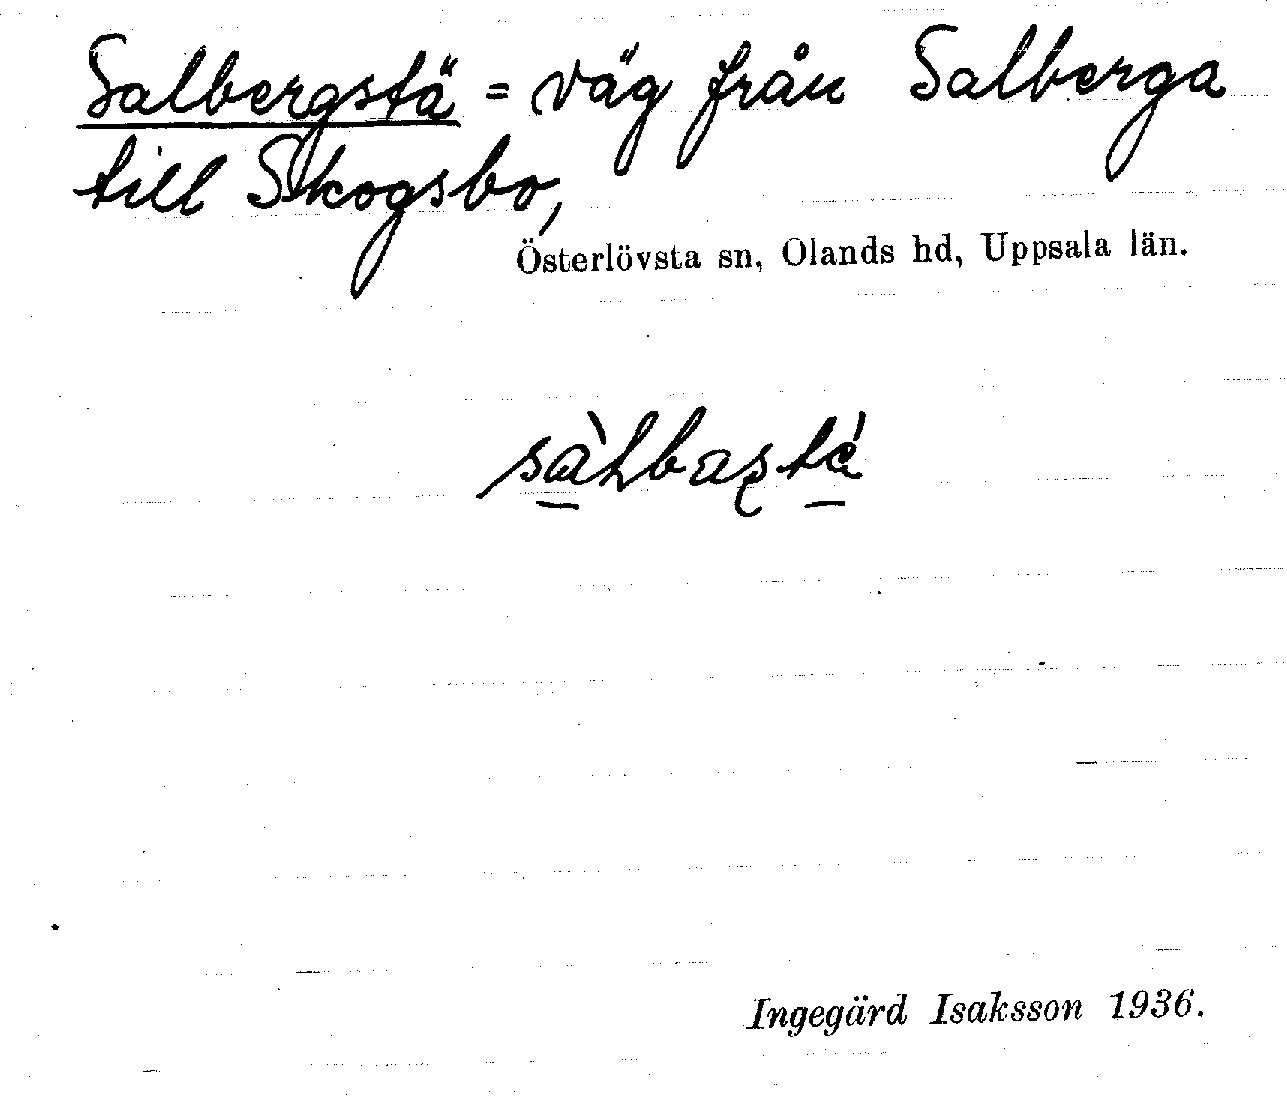 Salbergstä = väg från Salberga
till Skogsbo,
Österlövsta sn, Olands hd, Uppsala län.
Ingegärd Isaksson 1936.